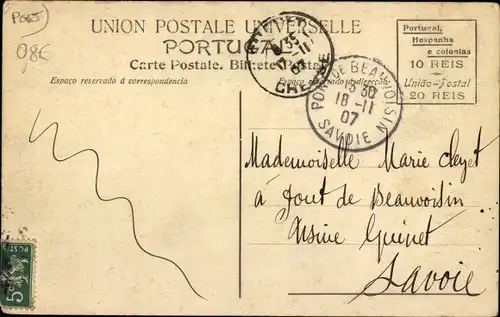 Port
98€
UNION POSTALE UNIVERSELLE
PORTUGAL
Carte Postale. Bilhete Postal
Espaço reservado á correspondencia
Espaço reservado
Portugal,
Hespanha
e colonias
10 REIS
União-Postal
20 REIS
35
11
07
CHER
PONT DE BEAUVOISIN
13 30
18-11
07
SAVOIE
Mademoiselle Marie
à Pont de Beauvoisin
Usine Guinet
Savoie
5
POSTES